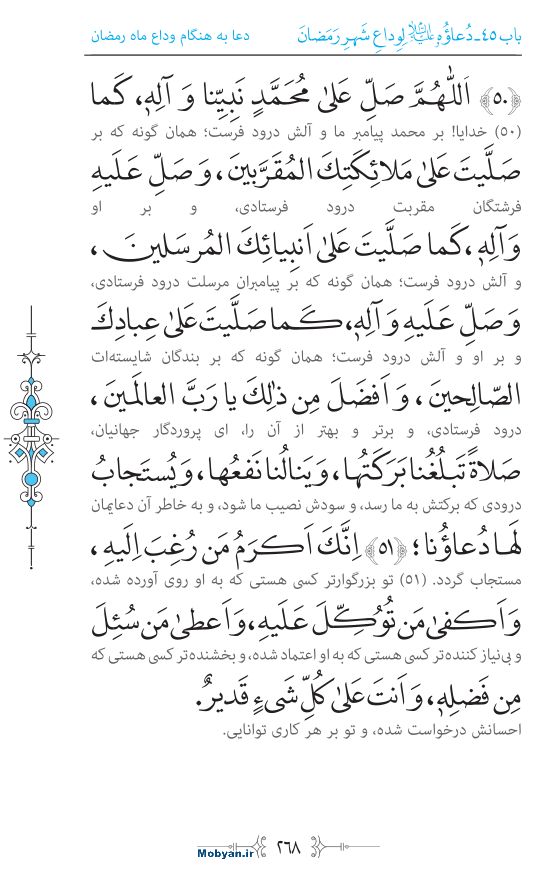 باب ٤٥ـ دُعاؤُهُ عليه‌السلام لِوِداعِ شَهرِ رَمَضانَ دعا به هنگام وداع ماه رمضان
﴿٥٠﴾ اَللّٰهُمَّ صَلِّ عَلىٰ مُحَمَّدٍ نَبِيِّنا وَ آلِهِ، كَما
(۵۰) خدایا! بر محمد پیامبر ما و آلش درود فرست؛ همان گونه که بر
صَلَّيتَ عَلىٰ مَلائِكَتِكَ المُقَرَّبينَ، وَ صَلِّ عَلَيهِ
فرشتگان مقربت درود فرستادی، و بر او
وَ آلِهِ، كَما صَلَّيتَ عَلىٰ اَنبِيائِكَ المُرسَلينَ،
و آلش درود فرست؛ همان گونه که بر پیامبران مرسلت درود فرستادی،
وَ صَلِّ عَلَيهِ وَ آلِهِ، كَما صَلَّيتَ عَلىٰ عِبادِكَ
و بر او و آلش درود فرست؛ همان گونه که بر بندگان شایسته‌ات
الصّالِحينَ، وَ اَفضَلَ مِن ذٰلِكَ يا رَبَّ العالَمينَ،
درود فرستادی، و برتر و بهتر از آن را، ای پروردگار جهانیان،
صَلاةً تَبلُغُنا بَرَكَتُها، وَ يَنالُنا نَفعُها، وَ يُستَجابُ
درودی که برکتش به ما رسد، و سودش نصیب ما شود، و به خاطر آن دعایمان
لَها دُعاؤُنا؛ ﴿٥١﴾ اِنَّكَ اَكرَمُ مَن رُغِبَ اِلَيهِ،
مستجاب گردد. (۵۱) تو بزرگوارتر کسی هستی که به او روی آورده شده،
وَ اَكفىٰ مَن تُوُكِّلَ عَلَيهِ، وَ اَعطىٰ مَن سُئِلَ
و بی‌نیاز کننده‌تر کسی هستی که به او اعتماد شده، و بخشنده‌تر کسی هستی که
مِن فَضلِهِ، وَ اَنتَ عَلىٰ كُلِّ شَىءٍ قَديرٌ.
احسانش درخواست شده، و تو بر هر کاری توانایی.
٢٦٨
Mobyan.ir